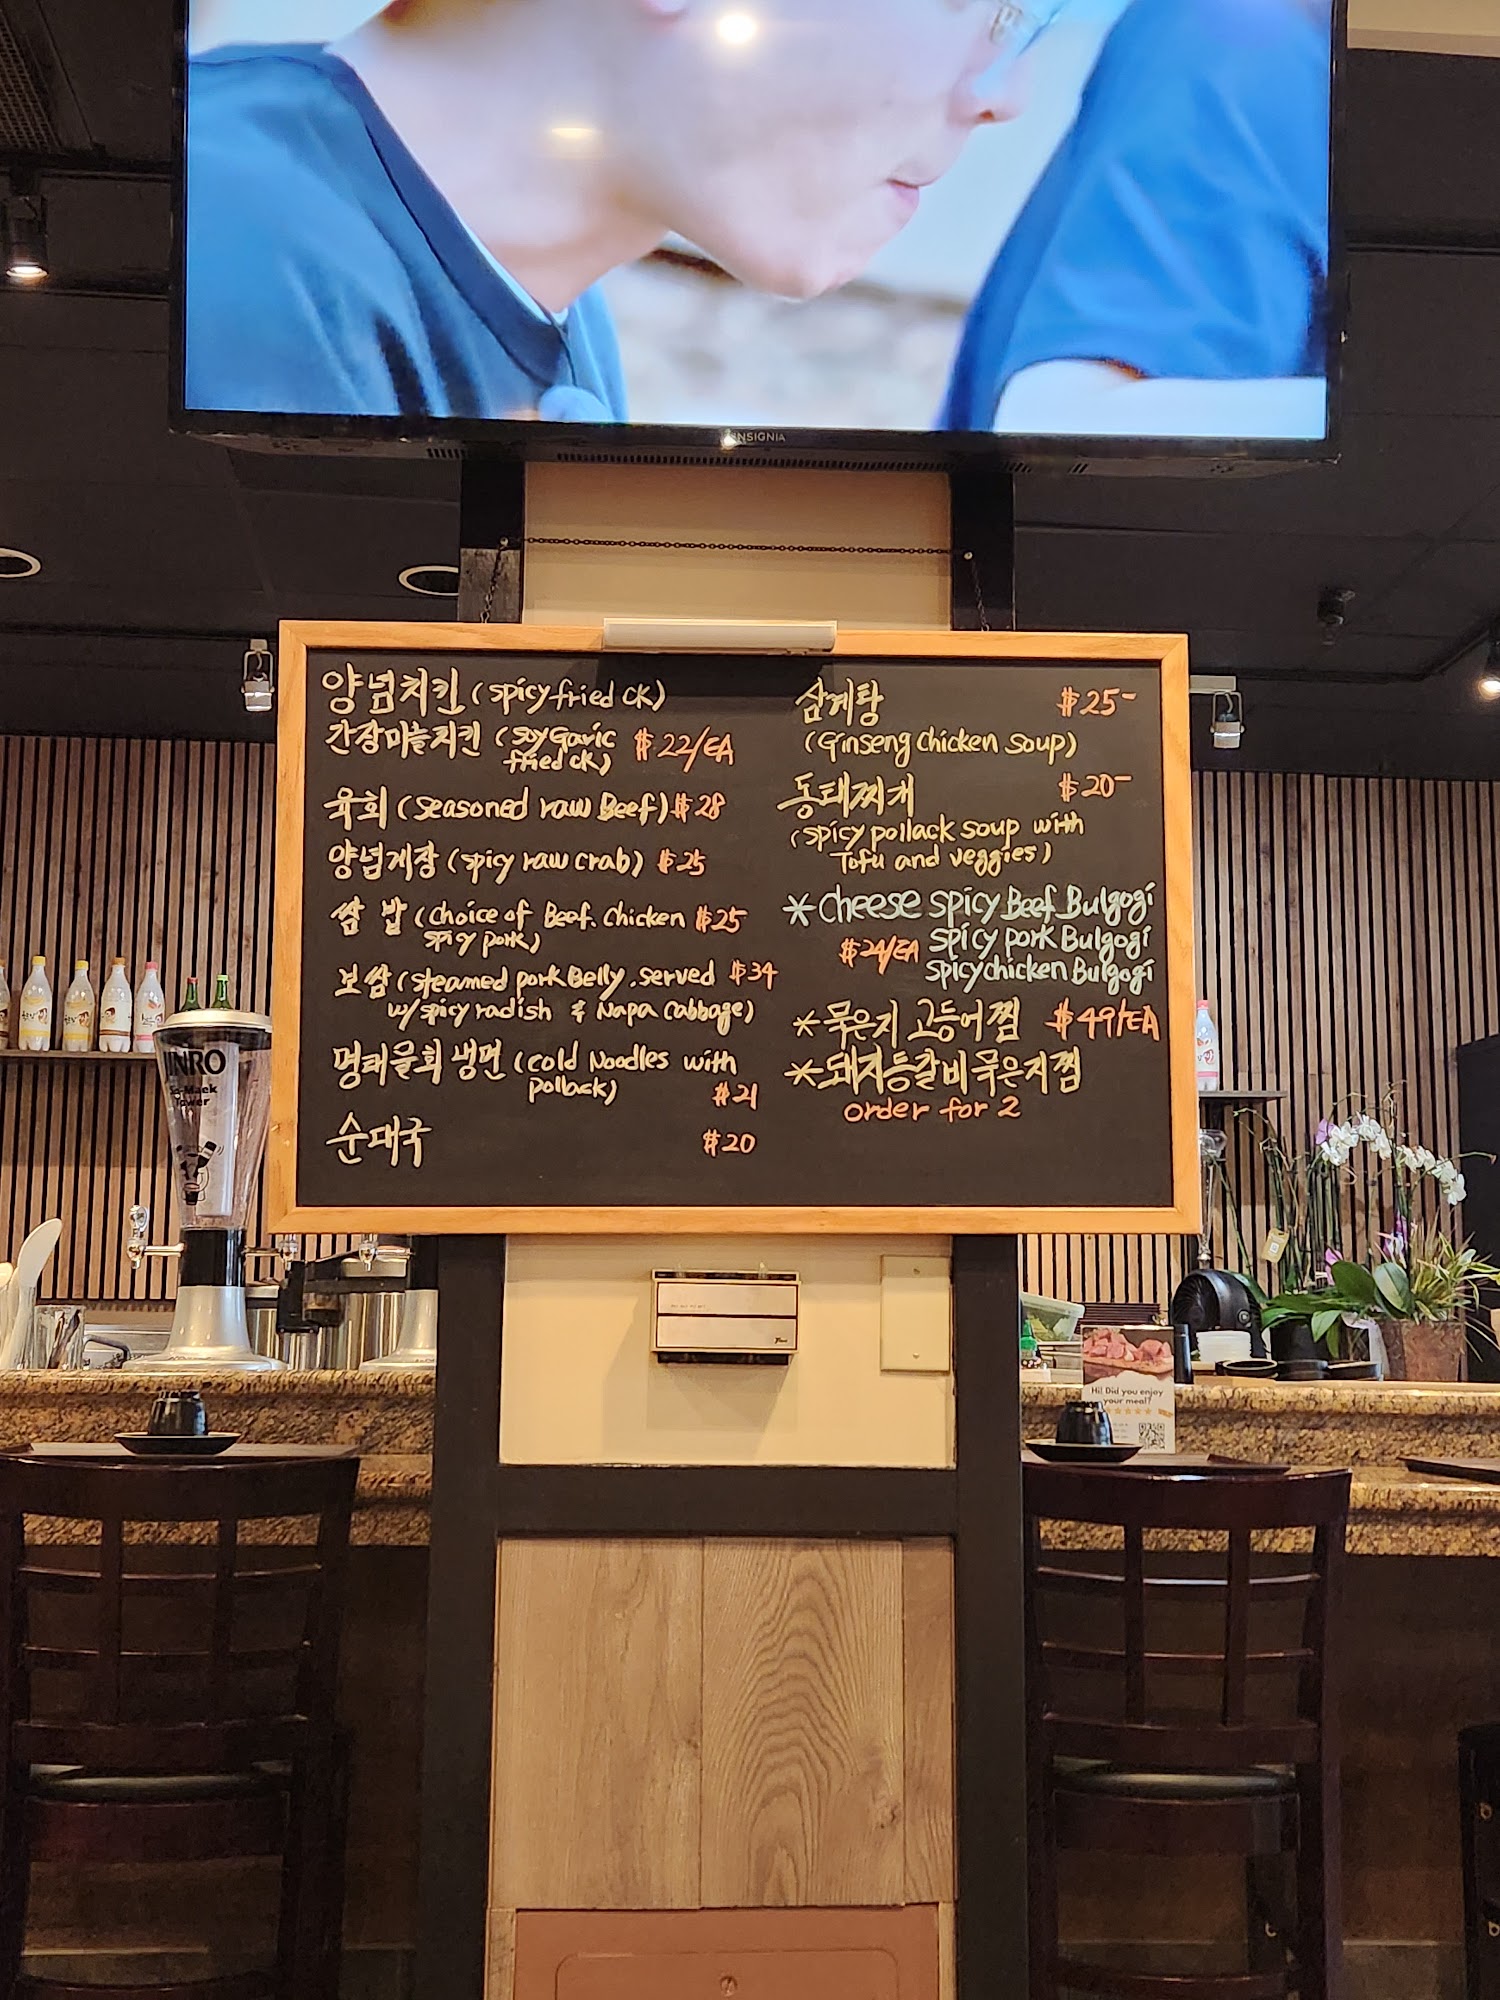 INSIGNIA
양념치킨 (spicy fried CK)
간장마늘치킨 (soy Garlic
fried CK) $22/EA
육회 (Seasoned raw Beef) $28
양념게장 (spicy raw crab) $25
쌈 밥 (choice of Beef. Chicken $25
spicy pork)
보쌈 (steamed pork Belly, served $34
w/spicy radish & Napa Cabbage)
명태물회 냉면 (cold Noodles with
pollack) $21
순대국 $20
삼계탕 $25-
(Ginseng chicken soup)
동태찌개 $20-
(spicy pollack soup with
Tofu and veggies)
* cheese spicy Beef Bulgogi
$24/EA spicy pork Bulgogi
spicy chicken Bulgogi
*묵은지 고등어찜 $49/EA
* 돼지등갈비묵은지찜
order for 2
JINRO
So-Maek
Tower
Hi! Did you enjoy
your meal?